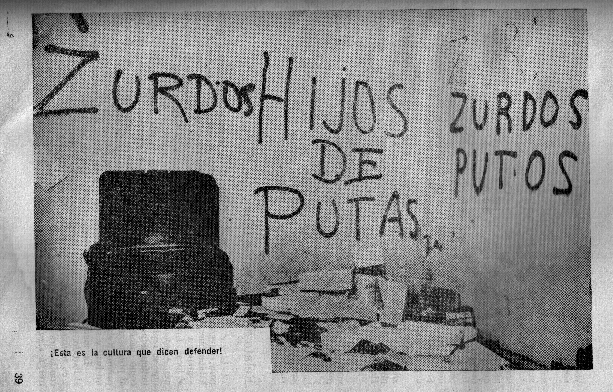 ZURDOS HIJOS
DE
PUTAS
ZURDOS
PUTOS
¡Esta es la cultura que dicen defender!
39